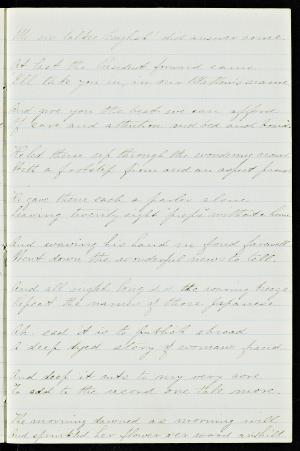 At last the President forward came
I'll take you in, in our Nation's name
And give you the best we can afford
Of care and attention and bed and board
He led them up through the wondering crowd
With a footstep firm and an aspect proud
He gave them each a parlor alone
Leaving twenty eight
And waving his hand in fond farewell
Went down the wonderful news to tell.
And all night long did the roaring breeze
Repeat the names of those Japanese
Oh, sad it is to publish abroad
A deep dyed story of woman's fraud
And deep it cuts to my very core
To add to the record one tale more.
The morning dawned as morning will
And sprinkled her flowers over wood and hill